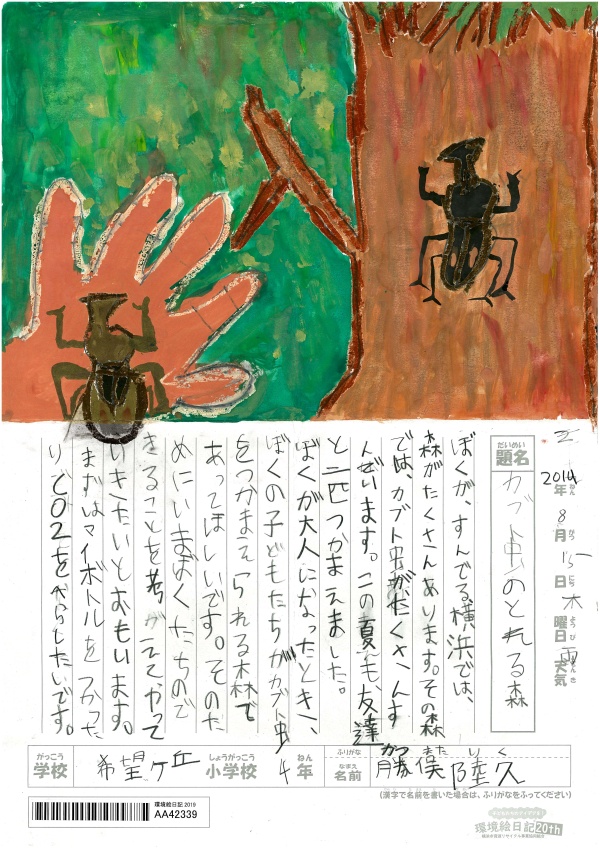 2019年 8月 15日 木曜日 天気 雨
ねん がつ にち ようび てんき
だいめい
題名
カブト虫のとれる森
ぼくが、すんでる横浜では、
森がたくさんあります。その森
では、カブト虫がたくさんす
んでいます。この夏も、友達
と二匹つかまえました。
ぼくが大人になったとき、
ぼくの子どもたちがカブト虫
をつかまえられる森で
あってほしいです。そのた
めにいまぼくたちので
きることを考がえてやって
いきたいとおもいます。
まずはマイボトルをつかった
りCO2をへらしたいです。
がっこう しょうがっこう ねん
学校 希望ケ丘 小学校 4年
ふりがな かつ また りく
なまえ
名前 勝俣 陸久
(漢字で名前を書いた場合は、ふりがなをふってください)
環境絵日記 2019
AA42339
環境絵日記20th